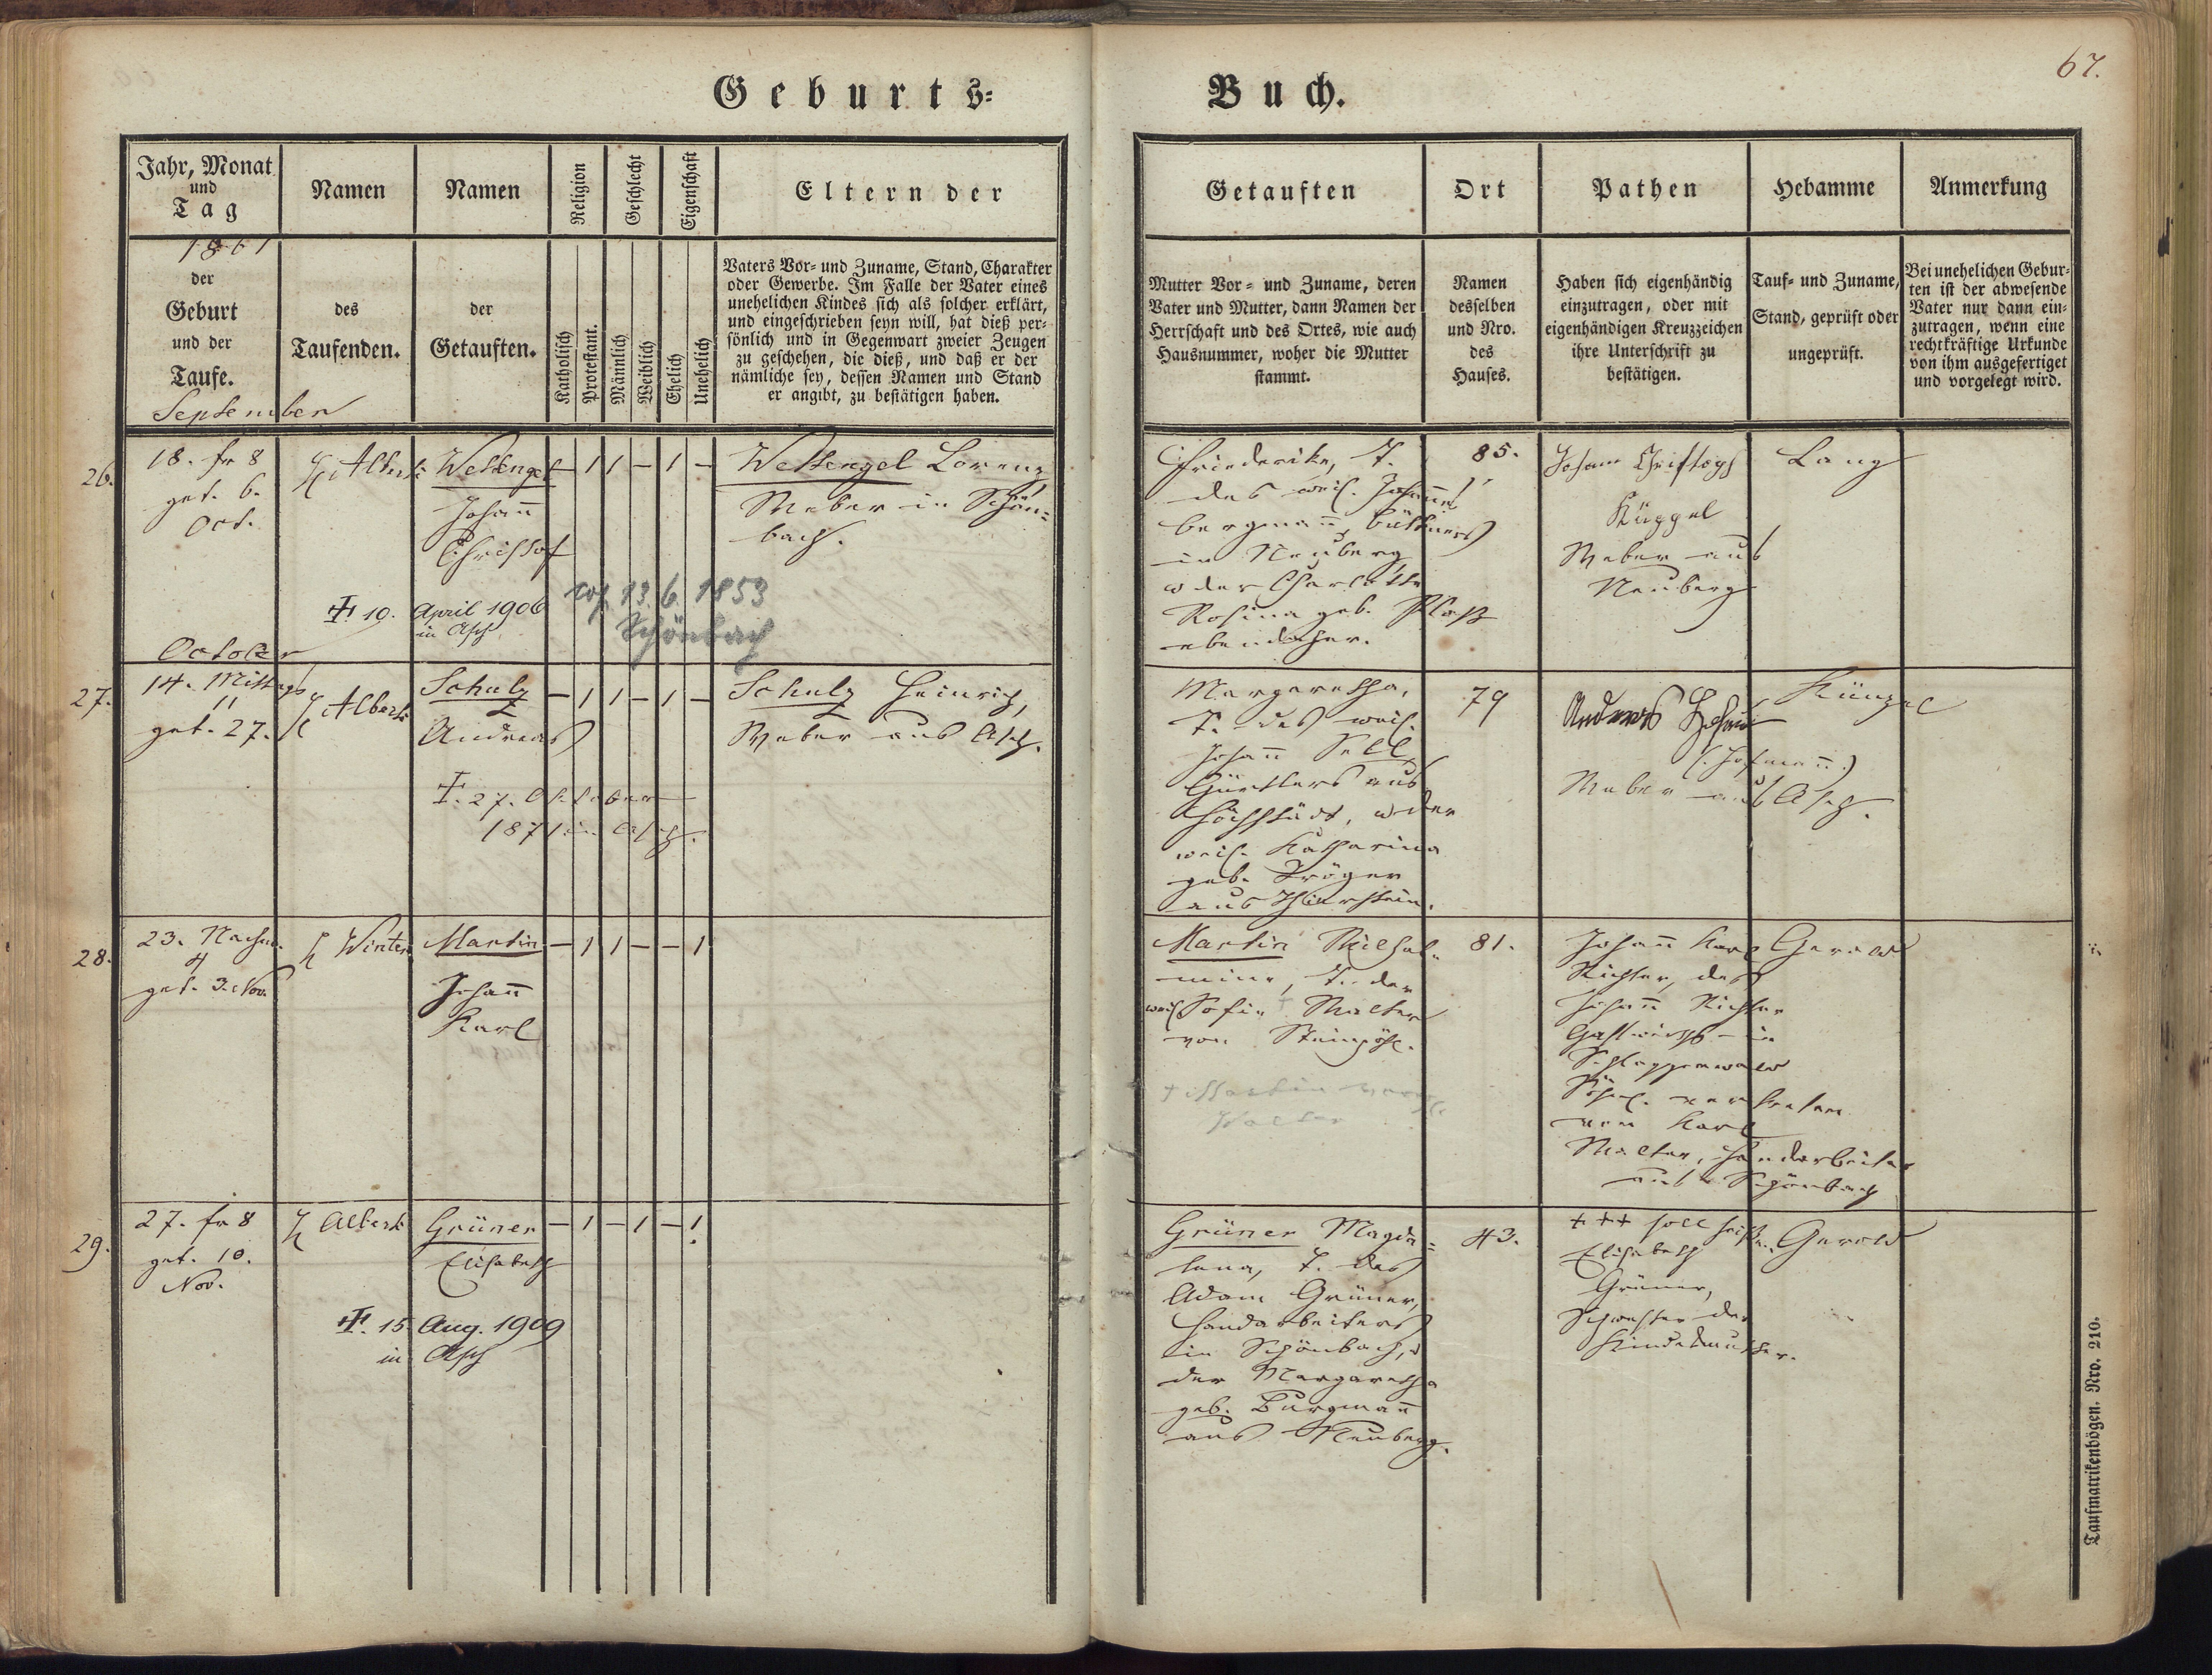 67.
Geburts-
Buch.
Jahr, Monat
und
Tag
Namen
Namen
Religion
Geschlecht
Eigenschaft
Eltern der
1861
der
Geburt
und der
Taufe.
September
des
Taufenden.
der
Getauften.
Katholisch
Protestant.
Männlich
Weiblich
Ehelich
Unehelich
Vaters Vor- und Zuname, Stand, Charakter
oder Gewerbe. Im Falle der Vater eines
unehelichen Kindes sich als solcher erklärt,
und eingeschrieben seyn will, hat dieß per-
sönlich und in Gegenwart zweier Zeugen
zu geschehen, die dieß, und daß er der
nämliche sey, dessen Namen und Stand
er angibt, zu bestätigen haben.
Getauften
Ort
Pathen
Hebamme
Anmerkung
Mutter Vor- und Zuname, deren
Vater und Mutter, dann Namen der
Herrschaft und des Ortes, wie auch
Hausnummer, woher die Mutter
stammt.
Namen
desselben
und Nro.
des
Hauses.
Haben sich eigenhändig
einzutragen, oder mit
eigenhändigen Kreuzzeichen
ihre Unterschrift zu
bestätigen.
Tauf- und Zuname,
Stand, geprüft oder
ungeprüft.
Bei unehelichen Gebur-
ten ist der abwesende
Vater nur dann ein-
zutragen, wenn eine
rechtkräftige Urkunde
von ihm ausgefertiget
und vorgelegt wird.
26.
18. fr 8
get. 6.
Oct.
Alberti
Wettengel
Johann
Christof
† 10. April 1906
in Asch
– 1 1 – 1 –
13. 6. 1853
Schönbach
Wettengel Lorenz,
Weber in Schön-
bach.
Friederike, T.
des weil. Johann
Bergmann, Büttners
in Neuberg
u der Charlotte
Rosina geb. Ploß
ebendaher.
85.
Johann Christoph
Küggel
Weber aus
Neuberg
Lang
October
27.
14. Mittags
11
get. 27.
Alberti
Schulz
Andreas
†. 27. Oktober
1871 in Asch.
– 1 1 – 1 –
Schulz Heinrich,
Weber aus Asch.
Margaretha,
T. des weil.
Johann Sell,
Gürtlers aus
Höchstädt, u der
weil. Katharina
geb. Tröger
aus Thierstein.
79
Andreas
(Hofmann.)
Weber aus Asch.
Künzel
28.
23. Nachm.
4
get. 3. Nov.
Winter
Martin
Johann
Karl
– 1 1 – – 1
Martin Wilhel-
mine, T. der
weil. Sofie Walter
von Steinpöhl.
81.
Johann Karl
Richter, des
Johann Richter
Gastwirths in
Schlaggenwald
Sohn. vertreten
von Karl
Walter, Handarbeiter
aus Schönbach
Gerold
29.
27. fr 8
get. 10.
Nov.
Alberti
Grüner
Elisabeth
†. 15. Aug. 1909
in Asch
– 1 – 1 – 1
Grüner Magda-
lena, T. des
Adam Grüner,
Handarbeiters
in Schönbach, u
der Margaretha
geb. Burgmann
aus Neuberg.
43.
+++ soll heißen
Elisabeth
Grüner,
Schwester der
Kindesmutter.
Gerold
Taufmatrikenbögen. Nro. 210.